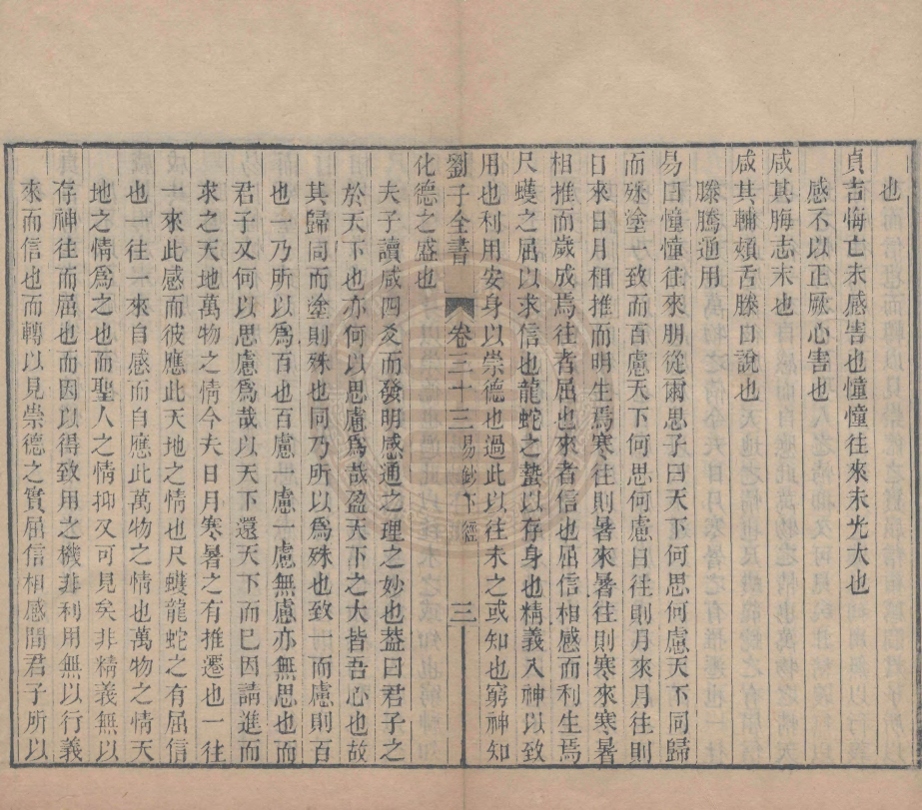 也
貞吉悔亡未感害也憧憧往來未光大也
感不以正厥心害也
咸其脢志末也
咸其輔頰舌滕口說也
滕騰通用
易曰憧憧往來朋從爾思子曰天下何思何慮天下同歸
而殊塗一致而百慮天下何思何慮日往則月來月往則
日來日月相推而明生焉寒往則暑來暑往則寒來寒暑
相推而歲成焉往者屈也來者信也屈信相感而利生焉
尺蠖之屈以求信也龍蛇之蟄以存身也精義入神以致
用也利用安身以崇德也過此以往未之或知也窮神知
劉子全書 卷三十三 易鈔下經 三
化德之盛也
夫子讀咸四爻而發明感通之理之妙也葢曰君子之
於天下也亦何以思慮爲哉盈天下之大皆吾心也故
其歸同而塗則殊也同乃所以爲殊也致一而慮則百
也一乃所以爲百也百慮一慮一慮無慮亦無思也而
君子又何以思慮爲哉以天下還天下而已因請進而
求之天地萬物之情今夫日月寒暑之有推遷也一往
一來此感而彼應此天地之情也尺蠖龍蛇之有屈信
也一往一來自感而自應此萬物之情也萬物之情天
地之情爲之也而聖人之情抑又可見矣非精義無以
存神往而屈也而因以得致用之機非利用無以行義
來而信也而轉以見崇德之實屈信相感間君子所以